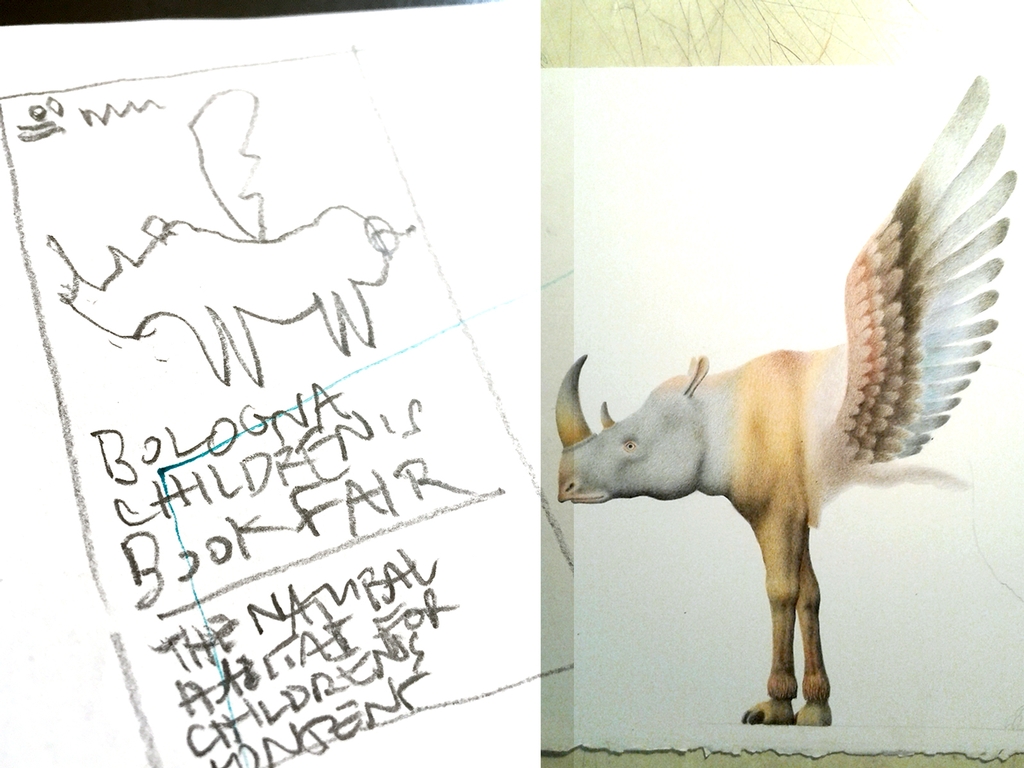 BOLOGNA
CHILDREN'S
BOOK FAIR
THE NATURAL
HABITAT FOR
CHILDREN'S